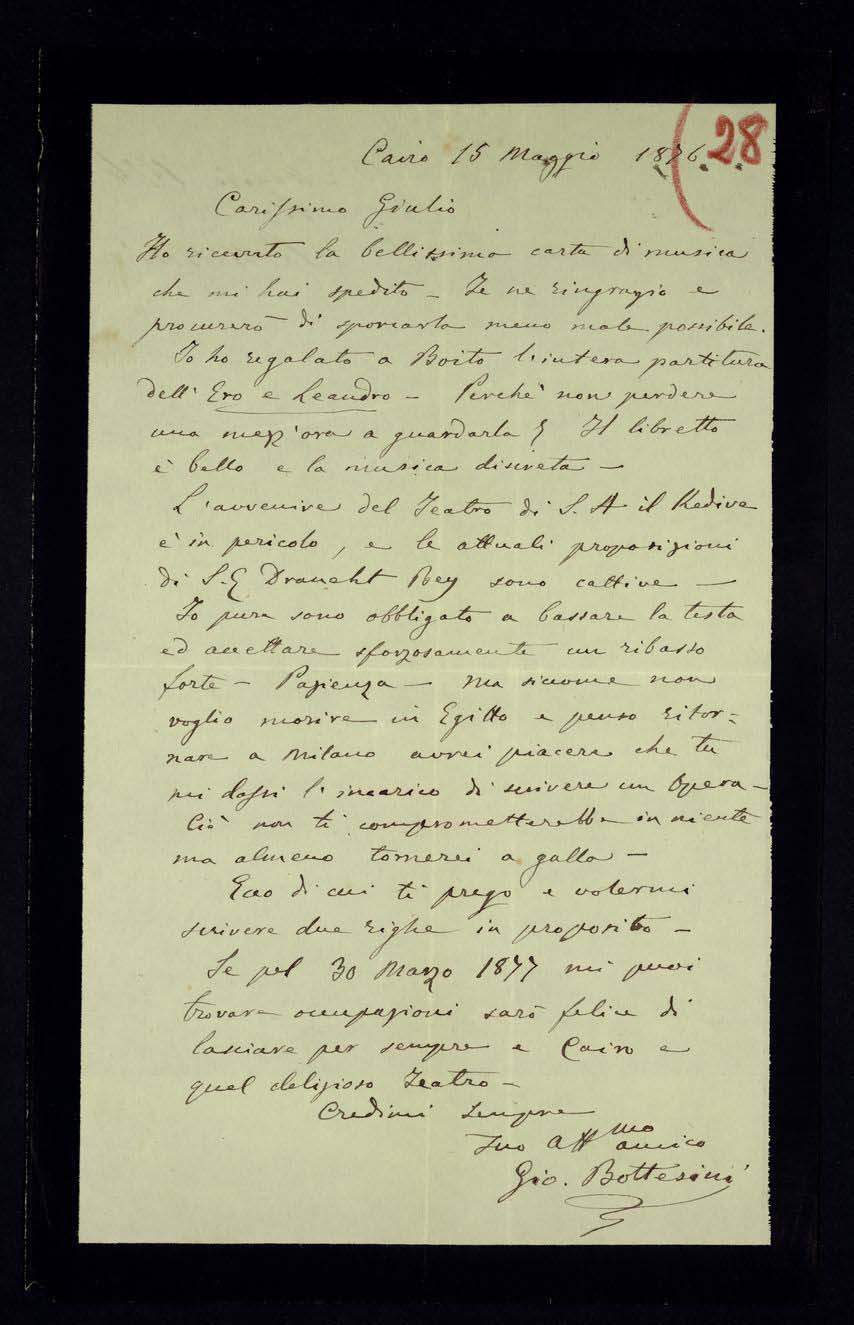 28
Cairo 15 Maggio 1876
Carissimo Giulio
Ho ricevuto la bellissima carta di musica
che mi hai spedito – Te ne ringrazio e
procurerò di sporcarla meno male possibile.
Io ho regalato a Boito l'intera partitura
dell'Ero e Leandro – Perchè non perdere
una mezz'ora a guardarla? Il libretto
è bello e la musica discreta –
L'avvenire del Teatro di S. A. il Kedive
è in pericolo, e le attuali proposizioni
di S. E. Draneht Bey sono cattive –
Io pure sono obbligato a bassare la testa
ed accettare sforzosamente un ribasso
forte – Pazienza – Ma siccome non
voglio morire in Egitto e penso ritor-
nare a Milano avrei piacere che tu
mi dassi l'incarico di scrivere un Opera –
Ciò non ti comprometterebbe in niente
ma almeno tornerei a galla –
Ecco di cui ti prego e volermi
scrivere due righe in proposito –
Se pel 30 Marzo 1877 mi puoi
trovare occupazioni sarò felice di
lasciare per sempre e Cairo e
quel delizioso Teatro –
Credimi sempre
Tuo Aff mo amico
Gio. Bottesini